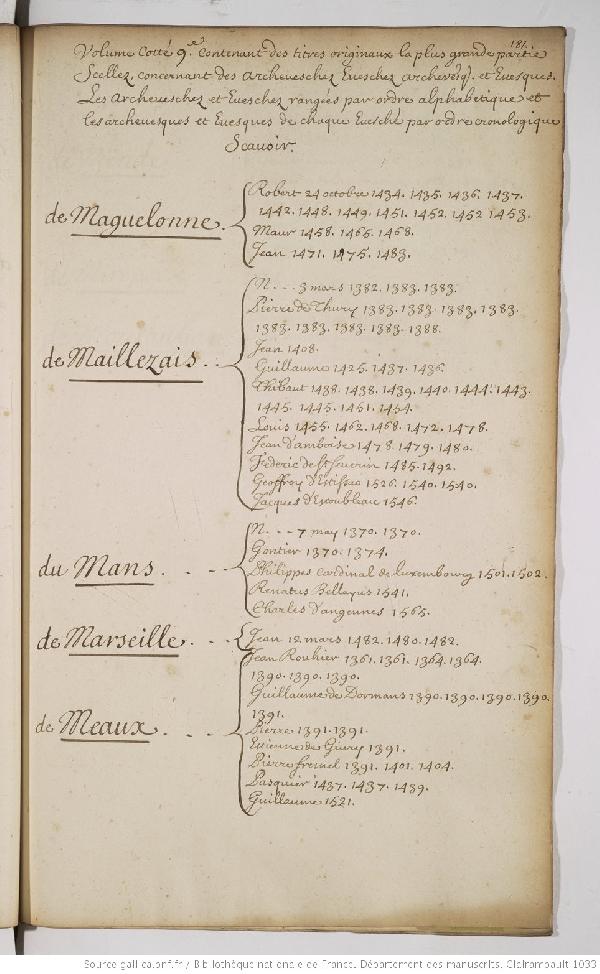 181.
Volume Cotté 9.e Contenant des titres originaux la plus grande partie
Scellez, concernant des archeueschez Eueschez archevesq. et Euesques.
Les Archeueschez et Eueschez rangées par ordre alphabetique et
les archeuesques et Euesques de chaque Euesché par ordre cronologique
Scauoir.
de Maguelonne.
Robert 24 octobre 1434. 1435. 1436. 1437.
1442. 1448. 1449. 1451. 1452. 1452. 1453.
Maur 1458. 1465. 1468.
Jean 1471. 1475. 1483.
de Maillezais. . .
N. . . . 3 mars 1382. 1383. 1383.
Pierre de Thury 1383. 1383. 1383. 1383.
1383. 1383. 1383. 1383. 1388.
Jean 1408.
Guillaume 1425. 1437. 1436.
Thibaut 1438. 1438. 1439. 1440. 1444. 1443.
1445. 1445. 1451. 1454.
Louis 1455. 1462. 1468. 1472. 1478.
Jean d'amboise 1478. 1479. 1480.
Féderic de St Seuerin 1485. 1492.
Geoffroy d'Estissac 1526. 1540. 1540.
Jacques d'Escoubleau 1546.
du Mans. . - . -
N. . . . 7 may 1370. 1370.
Gontier 1370. 1374.
Philippes Cardinal de Luxembourg 1501. 1502.
Renatus Bellayus 1541.
Charles d'angennes 1565.
de Marseille. . . .
Jean 12 mars 1482. 1480. 1482.
de Meaux. . - . -
Jean Rouhier 1361. 1361. 1364. 1364.
1390. 1390. 1390.
Guillaume de Dormans 1390. 1390. 1390. 1390.
1391.
Pierre 1391. 1391.
Etienne de Giury 1391.
Pierre fresnel 1391. 1401. 1404.
Pasquier 1437. 1437. 1439.
Guillaume 1521.
Source gallica.bnf.fr / Bibliothèque nationale de France. Département des manuscrits. Clairambault 1033